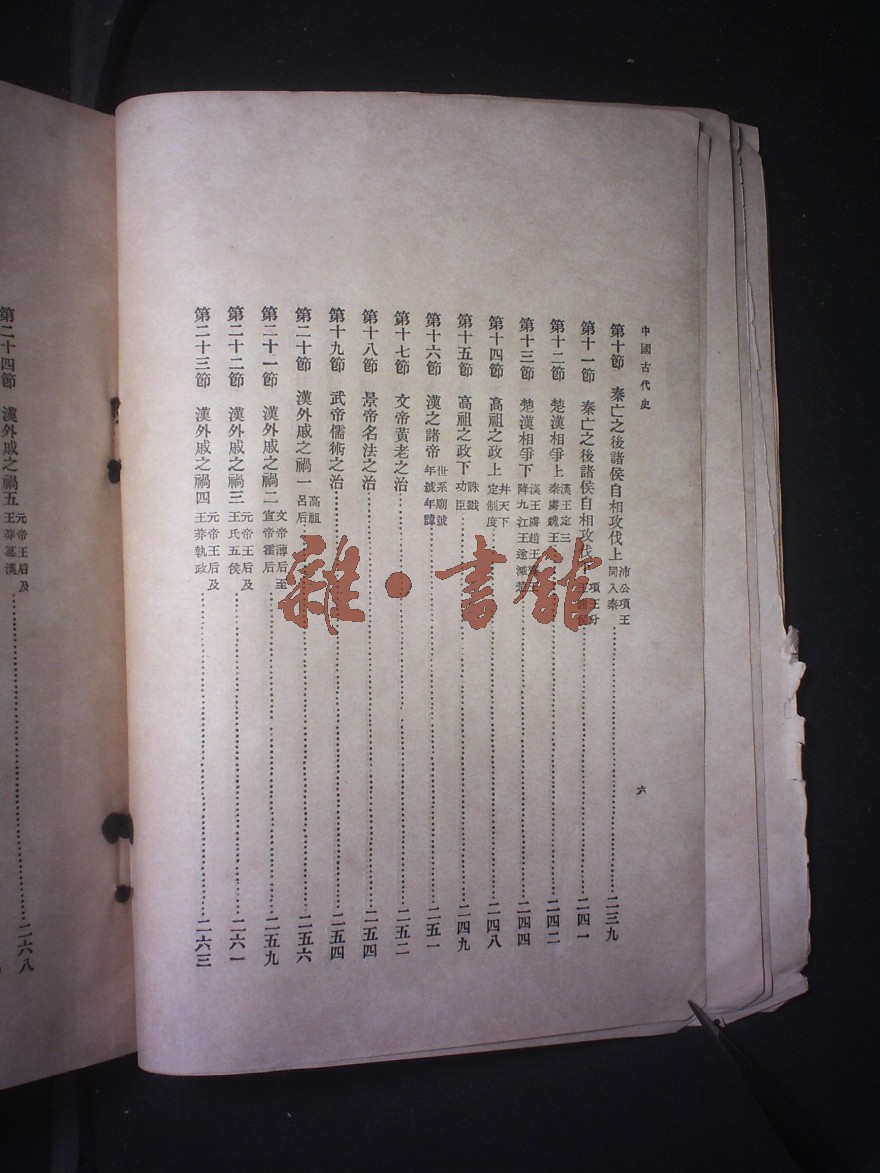 中國古代史
六
第十節 秦亡之後諸侯自相攻伐上 沛公項王同入秦 二三九
第十一節 秦亡之後諸侯自相攻伐下 項王分王諸侯 二四一
第十二節 楚漢相爭上 漢王定三秦虜魏王 二四二
第十三節 楚漢相爭下 漢王虜趙王 降九江王遂滅楚 二四四
第十四節 高祖之政上 幷天下定制度 二四八
第十五節 高祖之政下 誅戮功臣 二四九
第十六節 漢之諸帝 世系廟號年號年譜 二五一
第十七節 文帝黃老之治 二五二
第十八節 景帝名法之治 二五四
第十九節 武帝儒術之治 二五四
第二十節 漢外戚之禍一 高祖呂后 二五六
第二十一節 漢外戚之禍二 文帝薄后至宣帝霍后 二五九
第二十二節 漢外戚之禍三 元帝王后及王氏五侯 二六一
第二十三節 漢外戚之禍四 元帝王后及王莽執政 二六三
第二十四節 漢外戚之禍五 元帝王后及王莽篡漢 二六八
雜·書館